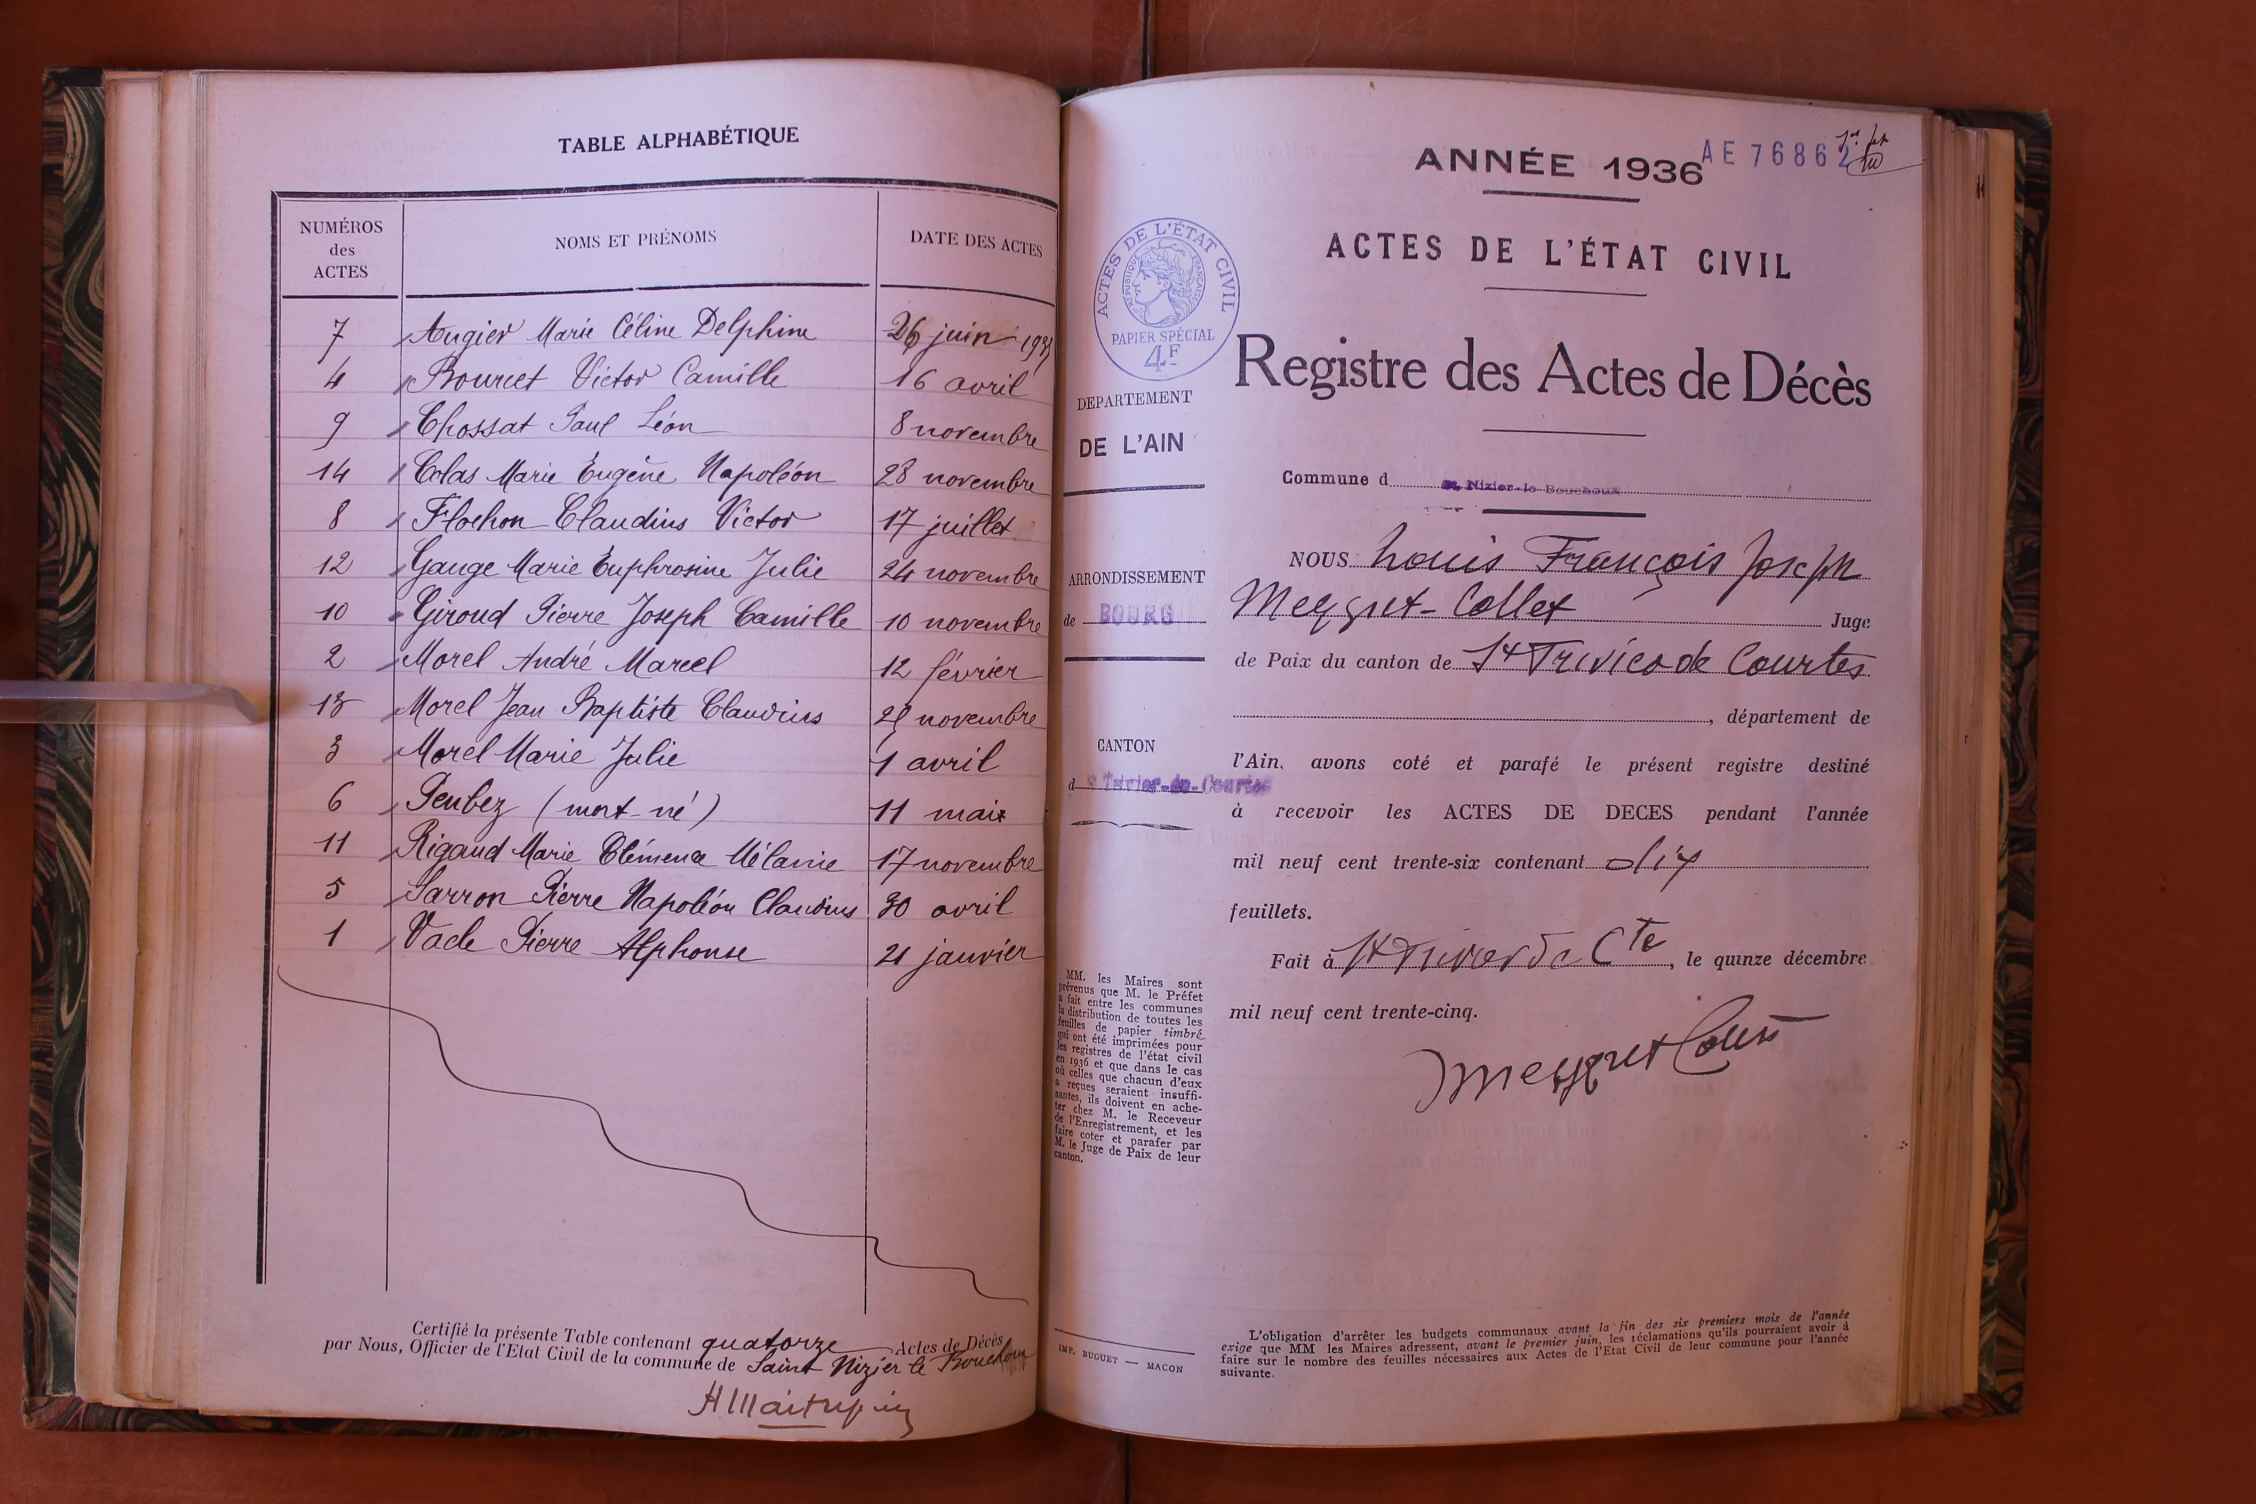 TABLE ALPHABÉTIQUE
NUMÉROS
des
ACTES
NOMS ET PRÉNOMS
DATE DES ACTES
7 Augier Marie Céline Delphine 26 juin
4 Bourcet Victor Camille 16 avril
9 Chossat Paul Léon 8 novembre
14 Colas Marie Eugène Napoléon 28 novembre
8 Flochon Claudius Victor 17 juillet
12 Gauge Marie Euphrosine Julie 24 novembre
10 Giroud Pierre Joseph Camille 10 novembre
2 Morel André Marcel 12 février
13 Morel Jean Baptiste Claudius novembre
3 Morel Marie Julie 1 avril
6 Peubez (mort-né) 11 mai
11 Rigaud Marie Clémence Mélanie 17 novembre
5 Sarron Pierre Napoléon Claudius 30 avril
1 Vacle Pierre Alphonse 21 janvier
Certifié la présente Table contenant quatorze Actes de Décès
par Nous, Officier de l'Etat Civil de la commune de Saint Nizier le Bouchoux
ANNÉE 1936
AE 76862
ACTES DE L'ÉTAT CIVIL
ACTES DE L'ÉTAT CIVIL
RÉPUBLIQUE FRANÇAISE
PAPIER SPÉCIAL
4F
Registre des Actes de Décès
DEPARTEMENT
DE L'AIN
Commune d St Nizier-le-Bouchoux
ARRONDISSEMENT
de BOURG
CANTON
d St Trivier-de-Courtes
NOUS Louis François Joseph
Meyguet-Collet Juge
de Paix du canton de St Trivier de Courtes
, département de
l'Ain, avons coté et parafé le présent registre destiné
à recevoir les ACTES DE DECES pendant l'année
mil neuf cent trente-six contenant dix
feuillets.
Fait à St Trivier de Cte, le quinze décembre
mil neuf cent trente-cinq.
MM. les Maires sont
prévenus que M. le Préfet
a fait entre les communes
la distribution de toutes les
feuilles de papier timbré
qui ont été imprimées pour
les registres de l'état civil
en 1936 et que dans le cas
où celles que chacun d'eux
a reçues seraient insuffi-
santes, ils doivent en ache-
ter chez M. le Receveur
de l'Enregistrement, et les
faire coter et parafer par
M. le Juge de Paix de leur
canton.
IMP. BUGUET — MACON
L'obligation d'arrêter les budgets communaux avant la fin des six premiers mois de l'année
exige que MM les Maires adressent, avant le premier juin, les réclamations qu'ils pourraient avoir à
faire sur le nombre des feuilles nécessaires aux Actes de l'Etat Civil de leur commune pour l'année
suivante.